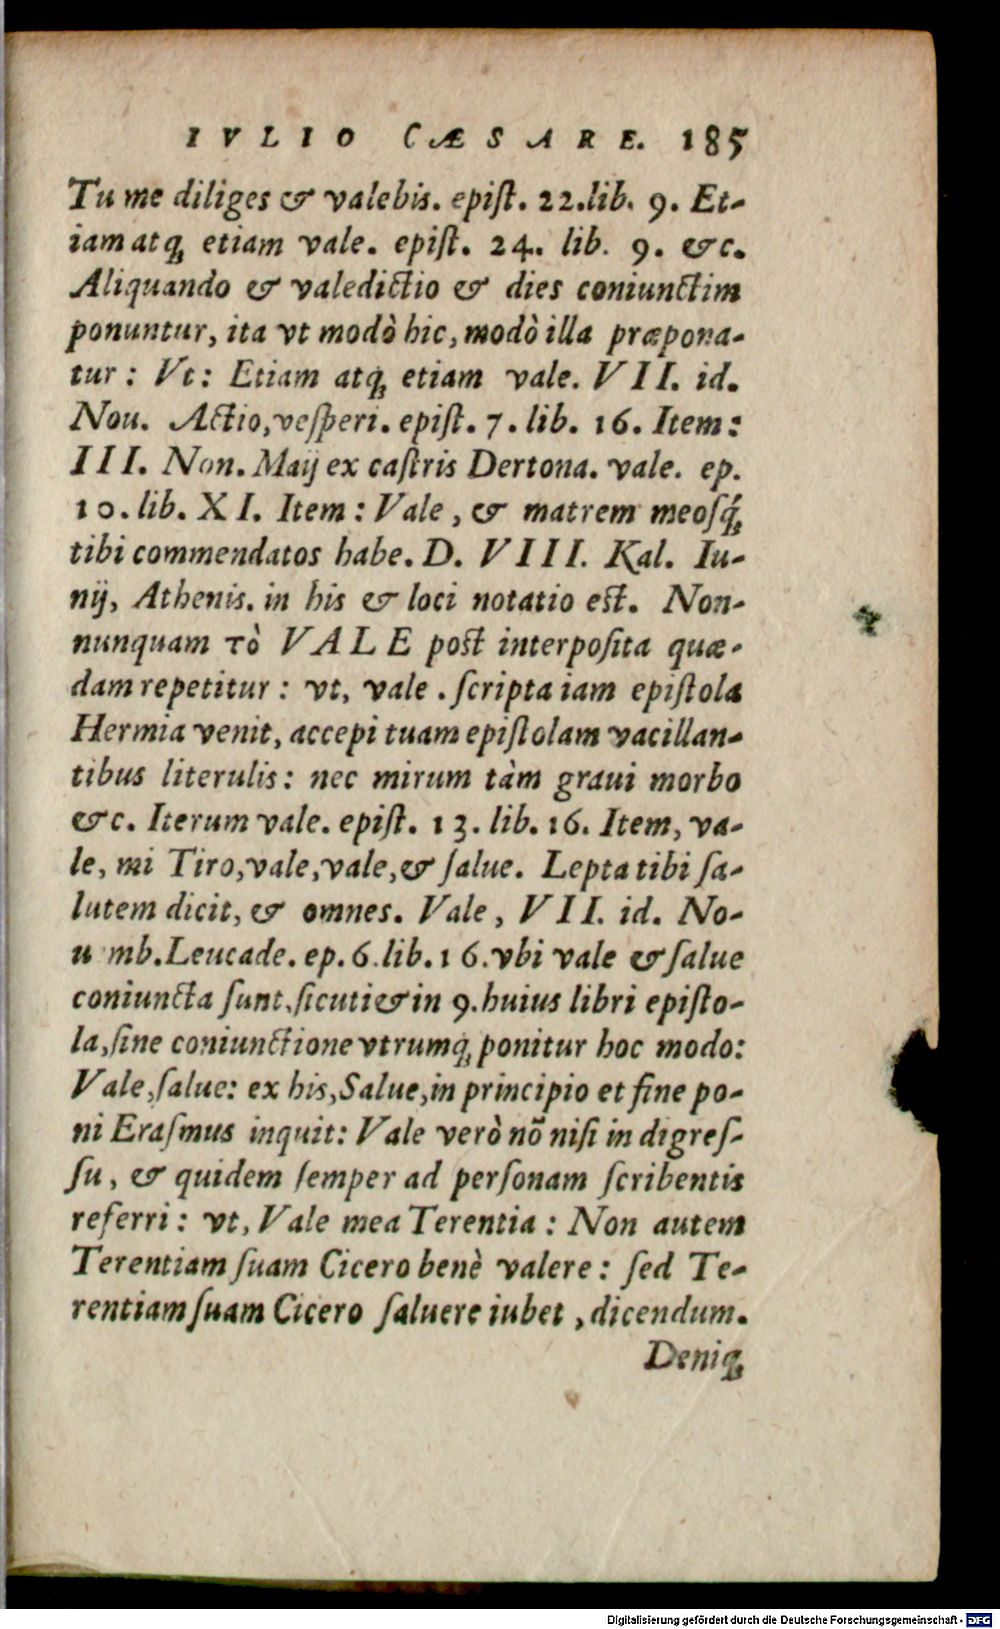 IVLIO CÆSARE. 185
Tu me diliges & valebis. epiſt. 22. lib. 9. Et-
iam atq; etiam vale. epiſt. 24. lib. 9. &c.
Aliquando & valedictio & dies coniunctim
ponuntur, ita vt modò hic, modò illa præpona-
tur: Vt: Etiam atq; etiam vale. VII. id.
Nou. Actio, veſperi. epiſt. 7. lib. 16. Item:
III. Non. Maij ex caſtris Dertona. vale. ep.
10. lib. XI. Item: Vale, & matrem meoſq́;
tibi commendatos habe. D. VIII. Kal. Iu-
nij, Athenis. in his & loci notatio est. Non-
nunquam τὸ VALE post interpoſita quæ-
dam repetitur: vt, vale. ſcripta iam epiſtola
Hermia venit, accepi tuam epiſtolam vacillan-
tibus literulis: nec mirum tàm graui morbo
&c. Iterum vale. epiſt. 13. lib. 16. Item, va-
le, mi Tiro, vale, vale, & ſalue. Lepta tibi ſa-
lutem dicit, & omnes. Vale, VII. id. No-
u mb. Leucade. ep. 6. lib. 16. vbi vale & ſalue
coniuncta ſunt, ſicuti & in 9. huius libri epiſto-
la, ſine coniunctione vtrumq; ponitur hoc modo:
Vale, ſalue: ex his, Salue, in principio et fine po-
ni Eraſmus inquit: Vale verò nõ niſi in digreſ-
ſu, & quidem ſemper ad perſonam ſcribentis
referri: vt, Vale mea Terentia: Non autem
Terentiam ſuam Cicero benè valere: ſed Te-
rentiam ſuam Cicero ſaluere iubet, dicendum.
Deniq;
Digitalisierung gefördert durch die Deutsche Forschungsgemeinschaft - DFG